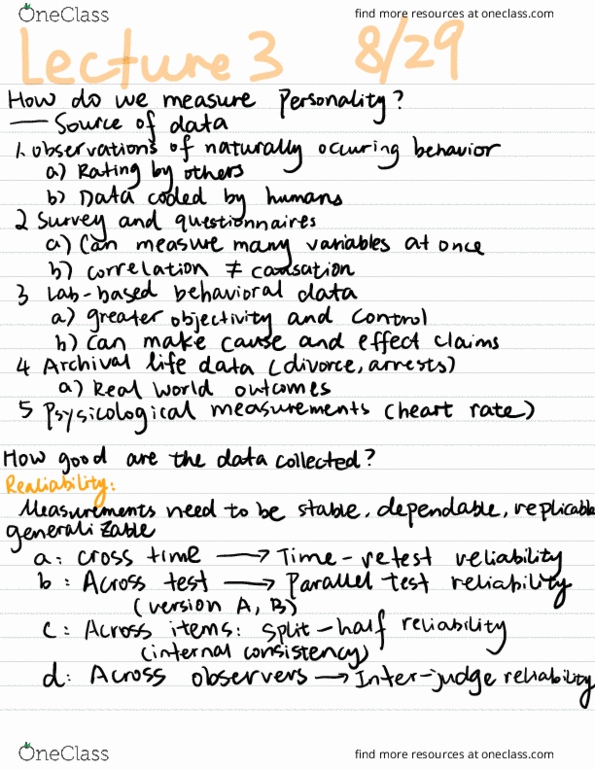 OneClass
find more resources at oneclass.com
Lecture 3 8/29
How do we measure Personality?
— Source of data
1. observations of naturally occuring behavior
a) Rating by others
b) Data coded by humans
2 Survey and questionnaires
a) Can measure many variables at once
b) correlation ≠ causation
3 Lab-based behavioral data
a) greater objectivity and control
b) Can make cause and effect claims
4 Archival life data (divorce, arrests)
a) Real World outcomes
5 Psysicological measurements (heart rate)
How good are the data collected?
Realiability:
Measurements need to be stable, dependable, replicable
generalizable
a: cross time → Time-retest reliability
b: Across test → Parallel test reliability
(version A, B)
c: Across items: split-half reliability
(internal consistency)
d: Across observers → Inter-judge reliability
OneClass
find more resources at oneclass.com